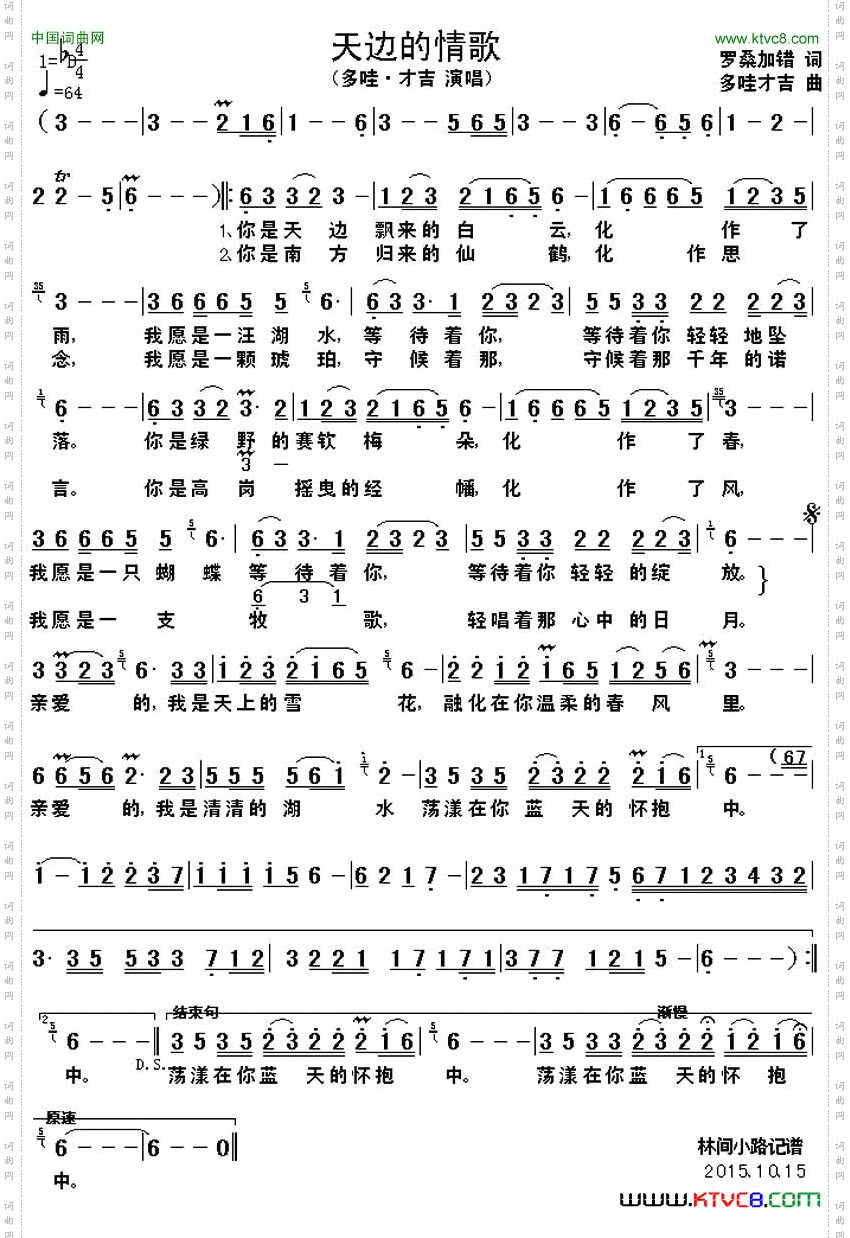 中国词曲网
天边的情歌
www.ktvc8.com
1=♭D 4/4
♩=64
(多哇·才吉 演唱)
罗桑加错 词
多哇才吉 曲
(3 - - - |3 - - 2 1 6 |1 - - 6 |3 - - 5 6 5 |3 - - 3 |6 - 6 5 6 |1 - 2 - |
2 2 - 5 |6 - - - )‖: 6 3 3 2 3 - |1 2 3 2 1 6 5 6 - |1 6 6 6 5 1 2 3 5 |
1、你是天 边 飘来的 白 云, 化 作 了
2、你是南 方 归来的 仙 鹤, 化 作 思
3 - - - |3 6 6 6 5 5 6· |6 3 3· 1 2 3 2 3 |5 5 3 3 2 2 2 2 3 |
雨, 我愿是一汪 湖 水, 等 待着 你, 等待着你 轻轻 地坠
念, 我愿是一颗 琥 珀, 守 候着 那, 守候着那 千年 的诺
6 - - - |6 3 3 2 3· 2 |1 2 3 2 1 6 5 6 - |1 6 6 6 5 1 2 3 5 |3 - - - |
落。 你是绿 野 的赛钦 梅 朵, 化 作 了 春,
3 -
言。 你是高 岗 摇曳的经 幡, 化 作 了 风,
3 6 6 6 5 5 6· | 6 3 3· 1 2 3 2 3 |5 5 3 3 2 2 2 2 3 |6 - - - |
我愿是一只 蝴 蝶 等 待着 你, 等待着你 轻轻 的绽 放。
6 3 1
我愿是一 支 牧 歌, 轻唱着那 心中 的日 月。
3 3 2 3 6· 3 3 |1 2 3 2 1 6 5 6 - |2 2 1 2 1 6 5 1 2 5 6 |3 - - - |
亲爱 的, 我是天上的 雪 花, 融化在你温柔的春 风 里。
6 6 5 6 2· 2 3 |5 5 5 5 6 1 2 - |3 5 3 5 2 3 2 2 2 1 6 |1. 6 - - (6 7 |
亲爱 的, 我是清清的 湖 水 荡漾在你蓝 天的怀抱 中。
1 - 1 2 2 3 7 |1 1 1 1 5 6 - |6 2 1 7 - |2 3 1 7 1 7 5 6 7 1 2 3 4 3 2 |
3· 3 5 5 3 3 7 1 2 | 3 2 2 1 1 7 1 7 1 |3 7 7 1 2 1 5 - |6 - - - ) :‖
2. 结束句 渐慢
6 - - - ‖ 3 5 3 5 2 3 2 2 2 1 6 |6 - - - |3 5 3 5 2 3 2 2 1 2 1 6 |
中。 D.S. 荡漾在你蓝 天的怀抱 中。 荡漾在你蓝 天的怀 抱
原速
6 - - - |6 - - 0 ‖
中。
林间小路记谱
2015.10.15
www.KTVC8.com